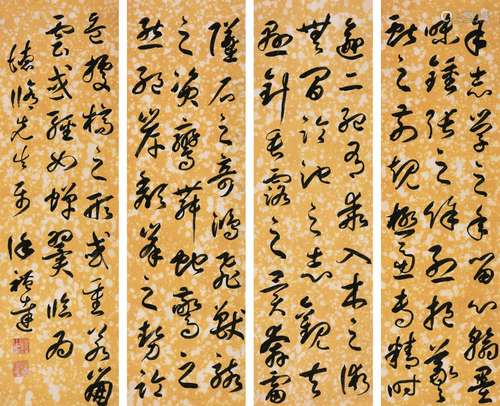 余志學之年留心翰墨
味鍾張之餘烈挹羲
獻之前規極慮專精時
逾二紀有乖入木之術
無間臨池之志觀夫
懸針垂露之異奔雷
墜石之奇鴻飛獸駭
之資鸞舞蛇驚之
態絕岸頹峰之勢臨
危據槁之形或重若崩
雲或輕如蟬翼臨為
先生